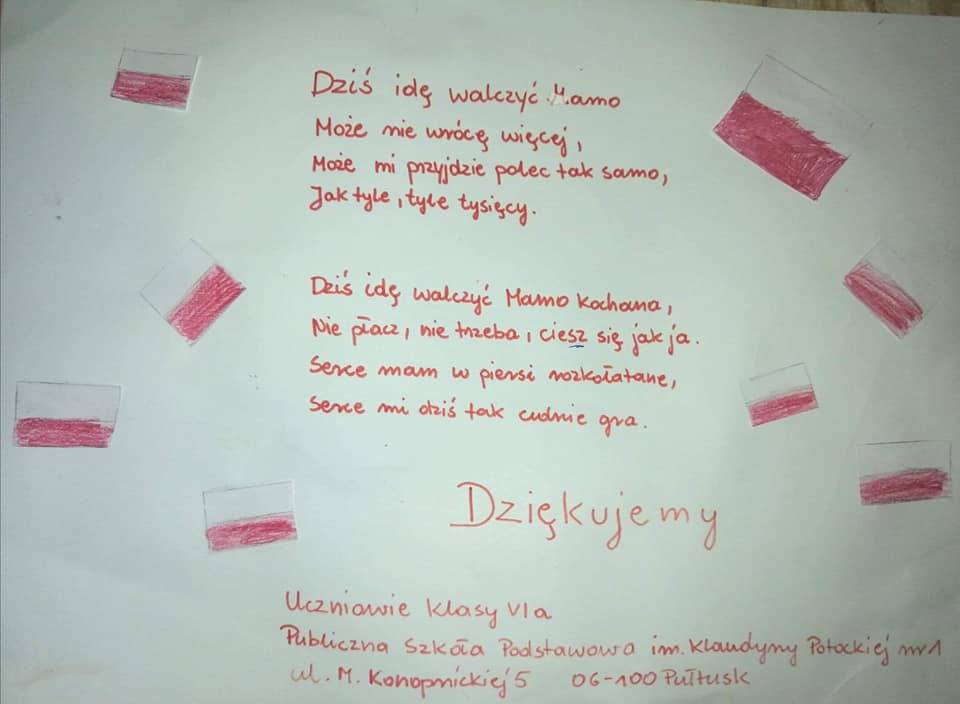 Dziś idę walczyć Mamo
Może nie wrócę więcej,
Może mi przyjdzie polec tak samo,
Jak tyle, tyle tysięcy.
Dziś idę walczyć Mamo kochana,
Nie płacz, nie trzeba, ciesz się jak ja.
Serce mam w piersi rozkołatane,
Serce mi dziś tak cudnie gra.
Dziękujemy
Uczniowie klasy VIa
Publiczna Szkoła Podstawowa im. Klaudyny Potockiej nr 1
ul. M. Konopnickiej 5 06-100 Pułtusk